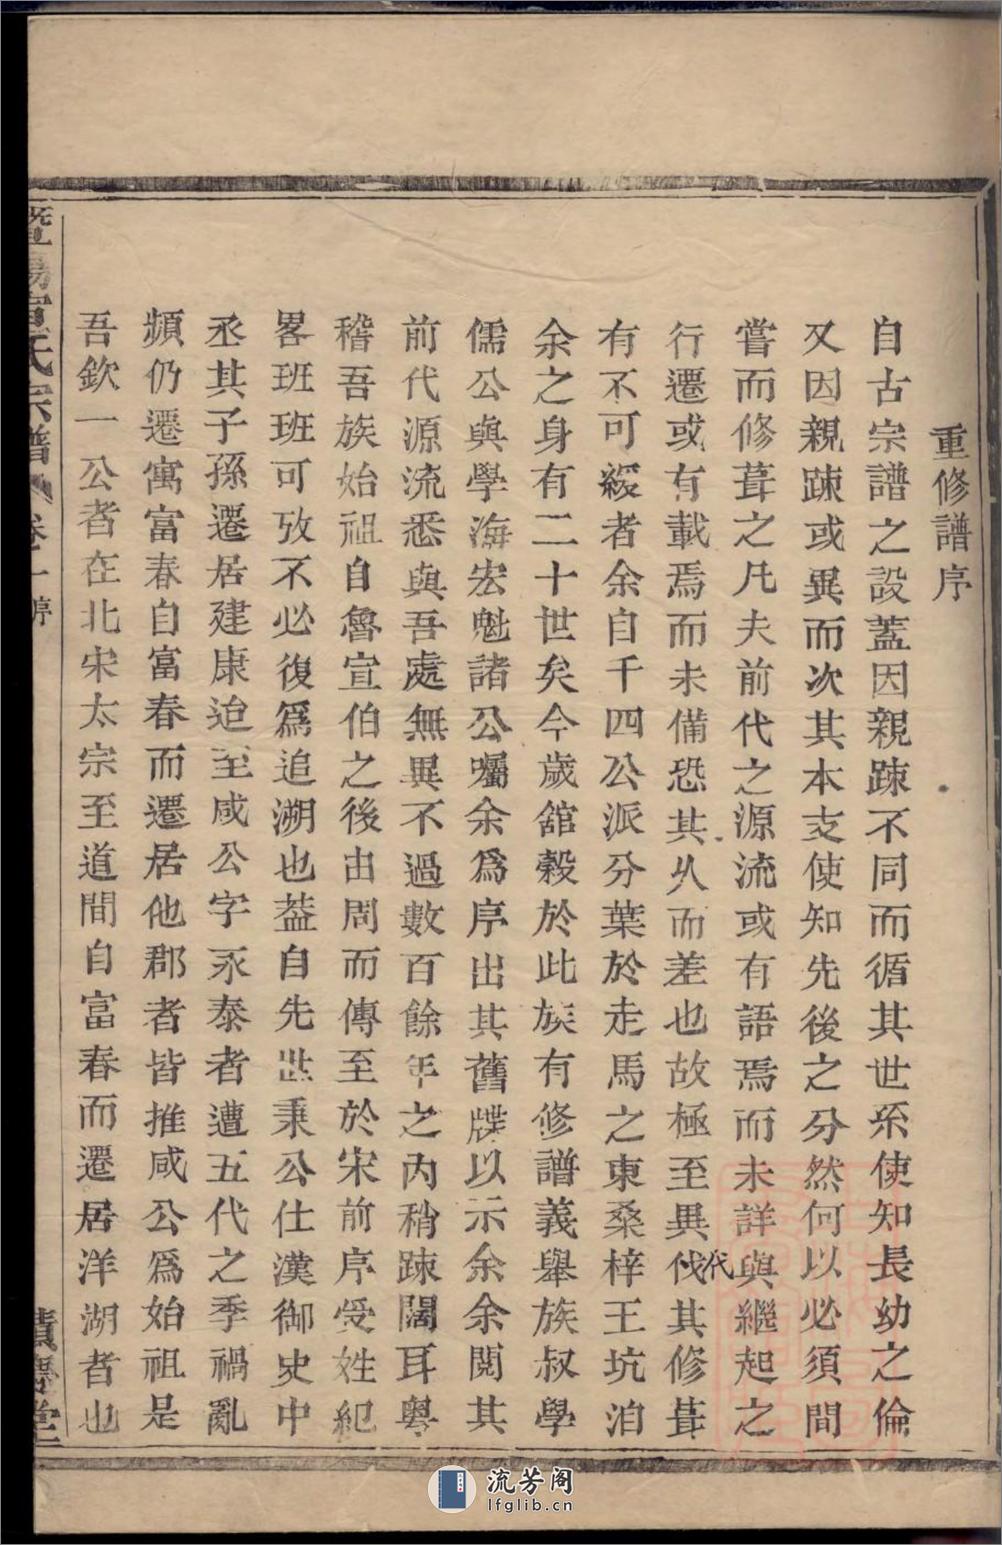 重修譜序
自古宗譜之設蓋因親踈不同而循其世系使知長幼之倫
又因親踈或異而次其本支使知先後之分然何以必須間
嘗而修葺之凡夫前代之源流或有語焉而未詳與繼起之
行遷或有載焉而未備恐其乆而差也故極至異伐其修葺
代
有不可緩者余自千四公派分葉於走馬之東桑梓王坑洎
余之身有二十世矣今歲舘穀於此族有修譜義舉族叔學
儒公與學海宏魁諸公囑余爲序出其舊牒以示余余閱其
前代源流悉與吾處無異不過數百餘年之內稍踈闊耳粵
稽吾族始祖自魯宣伯之後由周而傳至於宋前序受姓紀
畧班班可攷不必復爲追溯也葢自先世秉公仕漢御史中
丞其子孫遷居建康迨至咸公字永泰者遭五代之季禍亂
頻仍遷寓富春自富春而遷居他郡者皆推咸公爲始祖是
吾欽一公者在北宋太宗至道間自富春而遷居洋湖者也
暨陽宣氏宗譜 卷一 序
堂
流芳阁
lfglib.cn